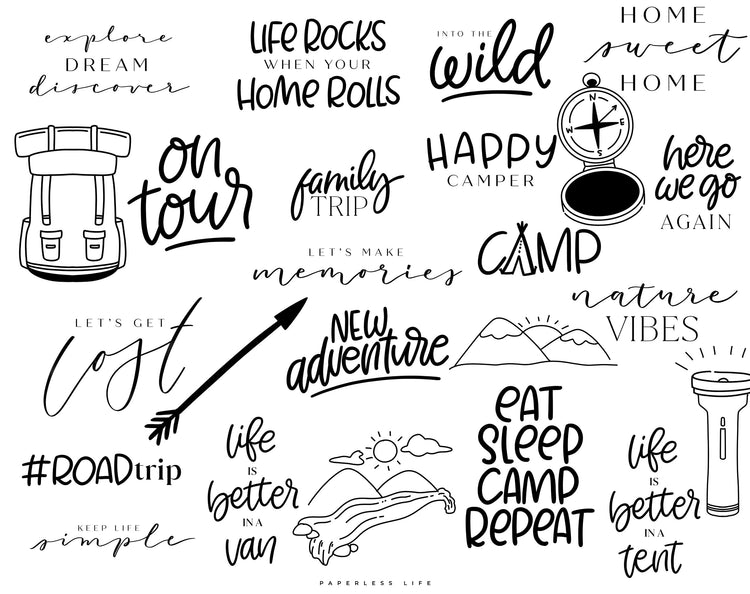 explore
DREAM
discover
LIFE ROCKS
WHEN YOUR
HOME ROLLS
INTO THE
wild
HOME
sweet
HOME
on
tour
family
TRIP
HAPPY
CAMPER
N
E
S
W
here
we go
AGAIN
LET'S MAKE
memories
CAMP
nature
VIBES
LET'S GET
lost
NEW
adventure
#ROADtrip
life
IS
better
IN A
van
EAT
SLEEP
CAMP
REPEAT
life
IS
better
IN A
tent
KEEP LIFE
simple
PAPERLESS LIFE